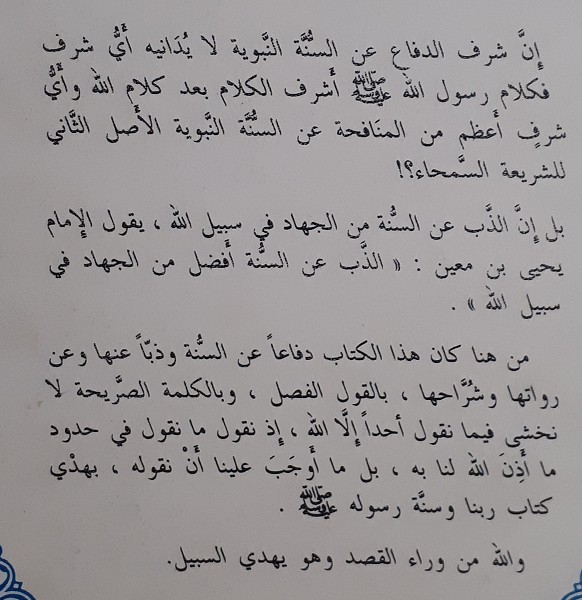 إِنَّ شرف الدفاع عن السنُّنَّة النَّبوية لا يُدَانيه أَيُّ شرف
فكلام رسول الله ﷺ أَشرف الكلام بعد كلام الله وأَيُّ
شرفٍ أَعظم من المنَافحة عن السنُّنَّة النَّبوية الأَصل الثَّاني
للشريعة السَّمحاء؟!
بل إِنَّ الذَّب عن السنُّة من الجهاد في سبيل الله ، يقول الإِمام
يحيى بن معين : « الذَّب عن السنُّة أَفضل من الجهاد في
سبيل الله » .
من هنا كان هذا الكتاب دفاعاً عن السنُّة وذبّاً عنها وعن
رواتها وشُرَّاحها ، بالقول الفصل ، وبالكلمة الصَّريحة لا
نخشى فيما نقول أحداً إِلَّا الله ، إِذ نقول ما نقول في حدود
ما أَذِنَ الله لنا به ، بل ما أَوجَبَ علينا أَنْ نقوله ، بهدْي
كتاب ربنا وسنَّة رسوله ﷺ .
والله من وراء القصد وهو يهدي السبيل.